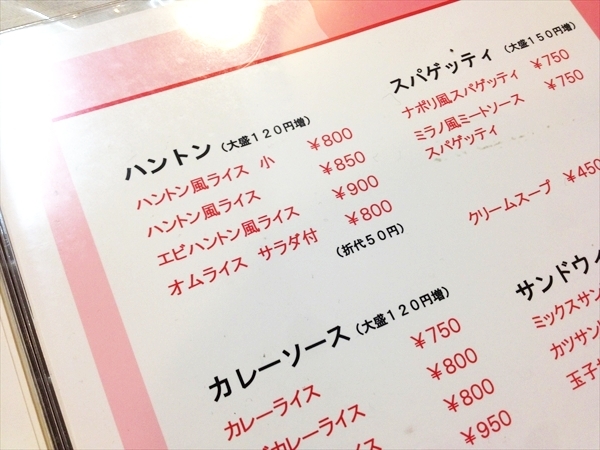 ハントン(大盛120円増)
ハントン風ライス 小 ¥800
ハントン風ライス ¥850
エビハントン風ライス ¥900
オムライス サラダ付 ¥800
(折代50円)
カレーソース(大盛120円増)
カレーライス ¥750
カレーライス ¥800
イス ¥800
¥950
スパゲッティ(大盛150円増)
ナポリ風スパゲッティ ¥750
ミラノ風ミートソース ¥750
スパゲッティ
クリームスープ ¥450
サンドウィ
ミックスサン
カツサン
玉子